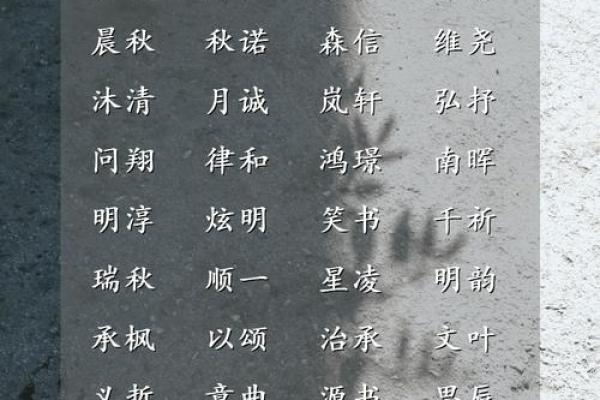 晨秋 秋诺 森信 维尧
沐清 月诚 岚轩 弘抒
问翔 律和 鸿璟 南晖
明淳 炫明 笑书 千祈
瑞秋 顺一 星凌 明韵
承枫 以颂 治承 文叶
源书